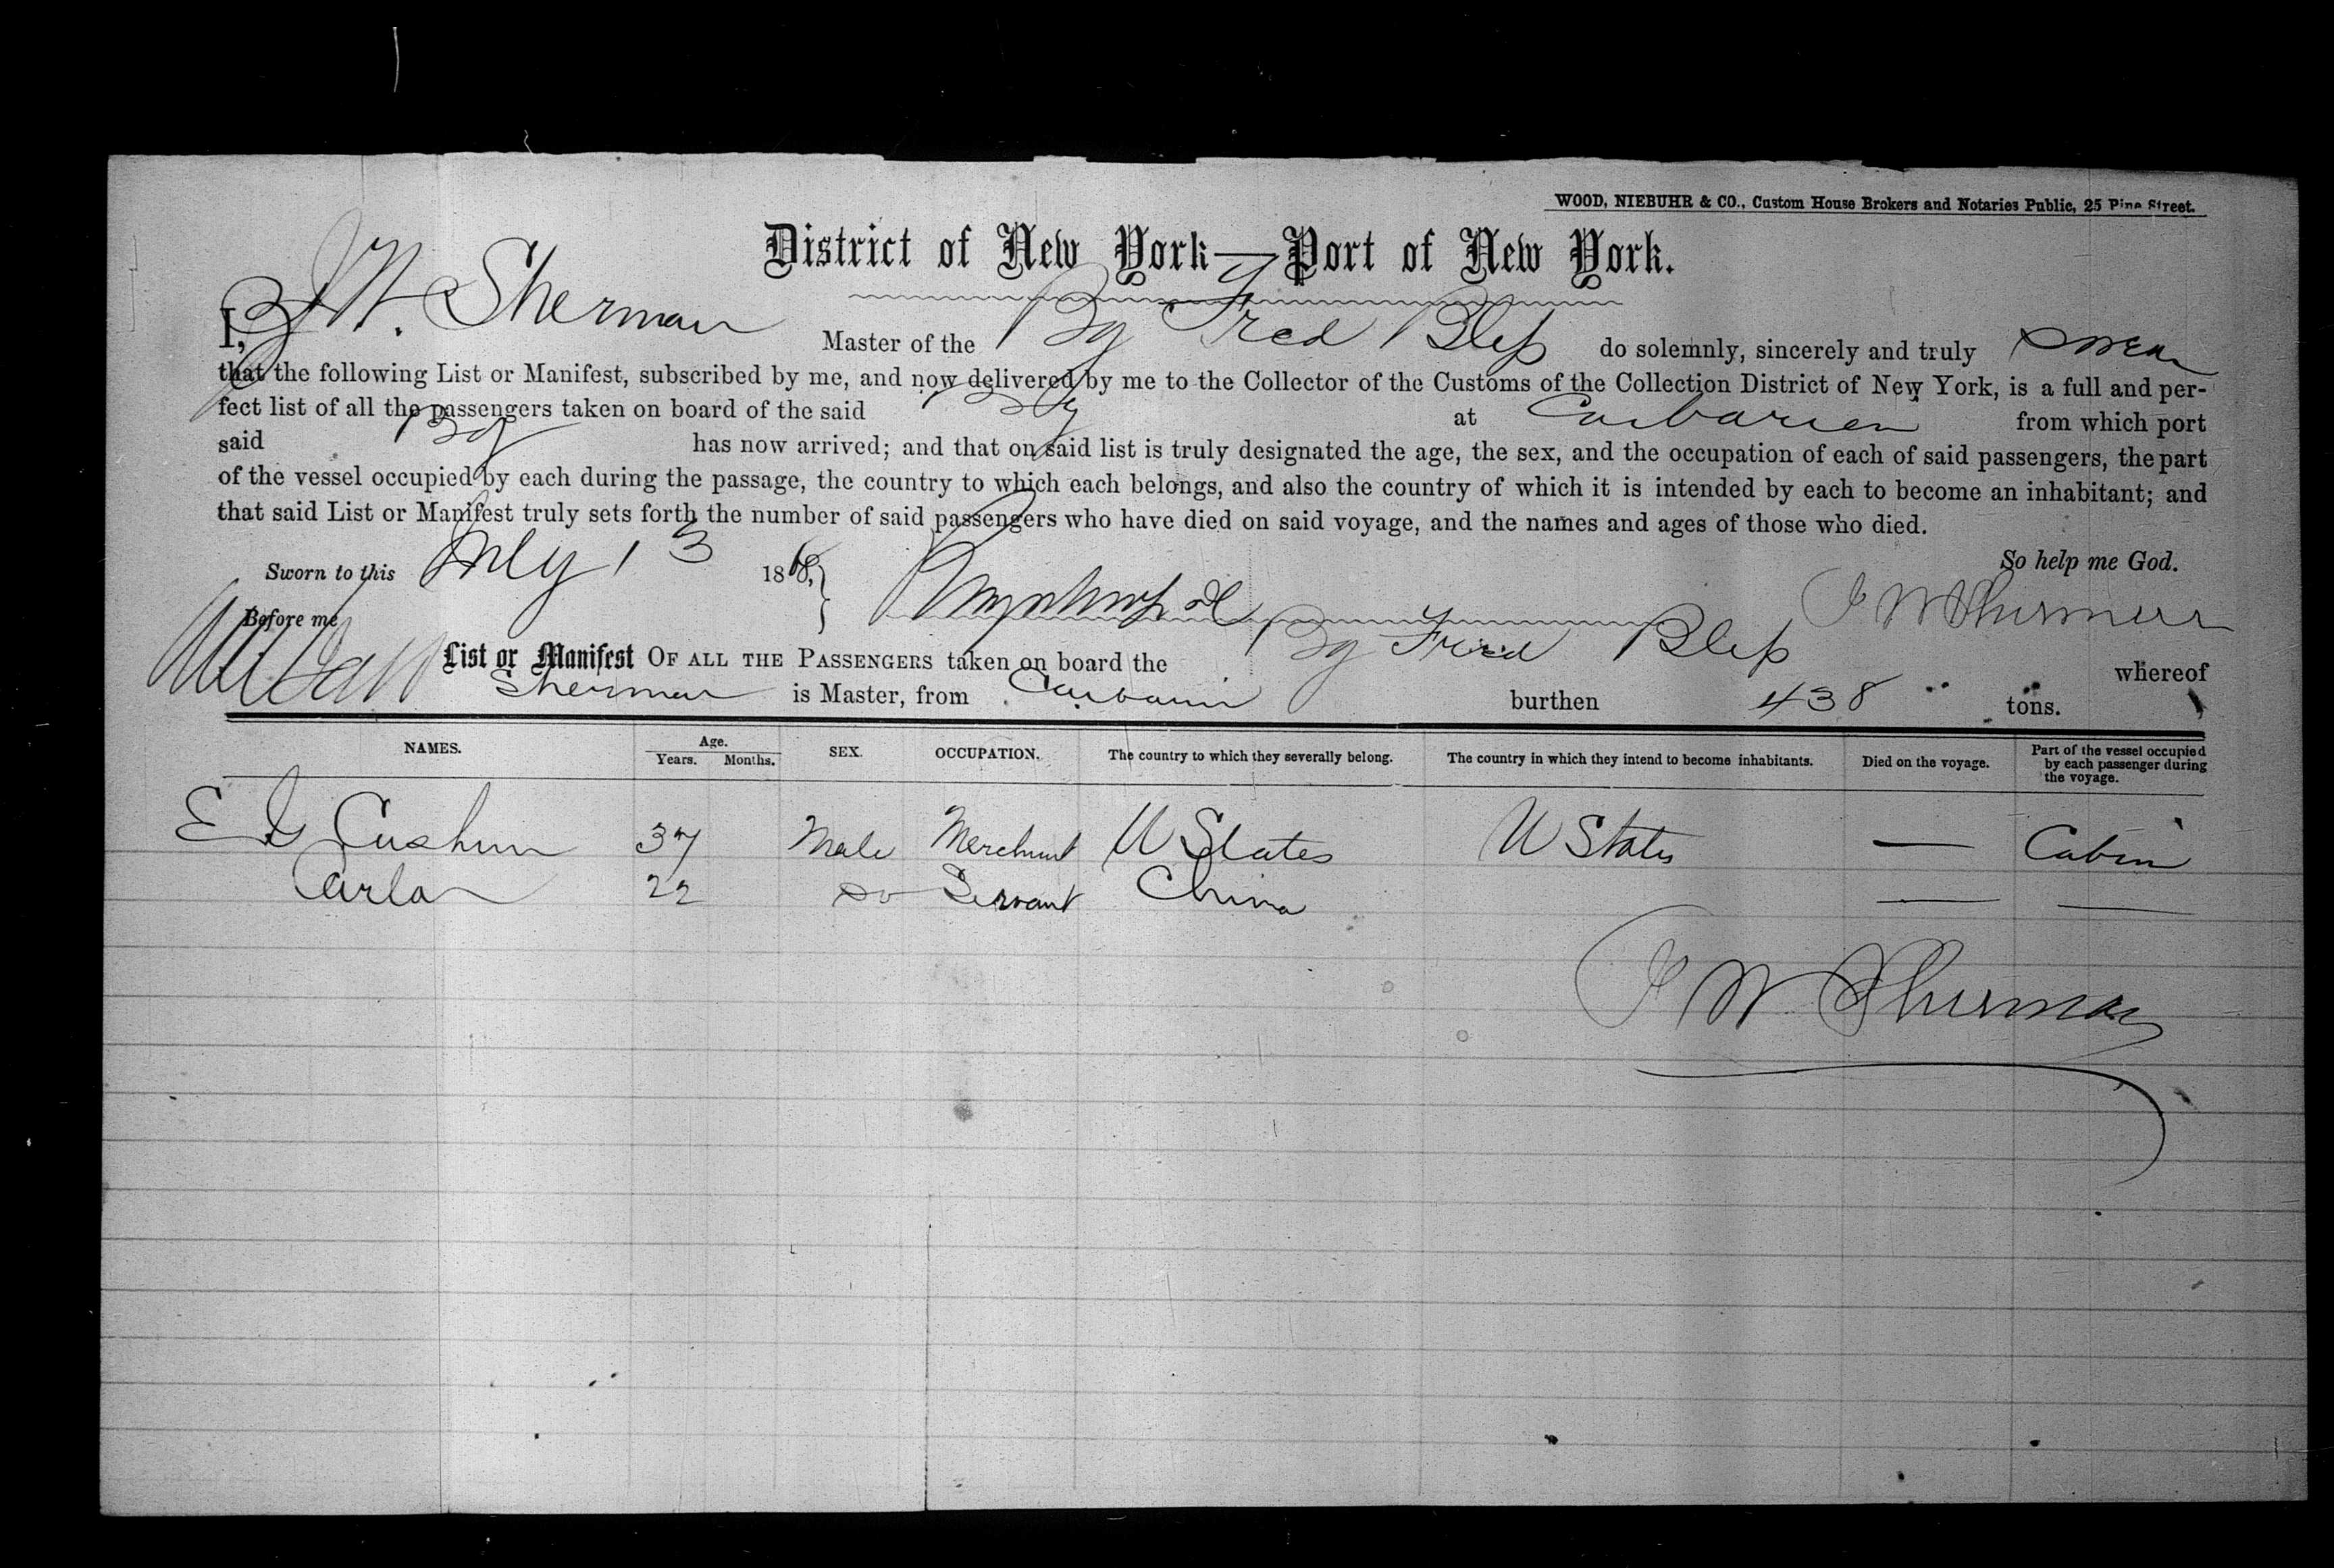 WOOD, NIEBUHR & CO., Custom House Brokers and Notaries Public, 25 Pine Street.
District of New York—Port of New York.
I, J W. Sherman Master of the Bg Fred Bliss do solemnly, sincerely and truly swear
that the following List or Manifest, subscribed by me, and now delivered by me to the Collector of the Customs of the Collection District of New York, is a full and per-
fect list of all the passengers taken on board of the said Bg at Caibarien from which port
said Bg has now arrived; and that on said list is truly designated the age, the sex, and the occupation of each of said passengers, the part
of the vessel occupied by each during the passage, the country to which each belongs, and also the country of which it is intended by each to become an inhabitant; and
that said List or Manifest truly sets forth the number of said passengers who have died on said voyage, and the names and ages of those who died.
So help me God.
Sworn to this July 13 1868, J W Sherman
Before me
List or Manifest OF ALL THE PASSENGERS taken on board the Bg Fred Bliss whereof
Sherman is Master, from burthen 438 tons.
NAMES. Age. Years. Months. SEX. OCCUPATION. The country to which they severally belong. The country in which they intend to become inhabitants. Died on the voyage. Part of the vessel occupied by each passenger during the voyage.
E Cushun 37 Male Merchant U States U States — Cabin
Carlos 22 Do Servant China — —
J W Sherman